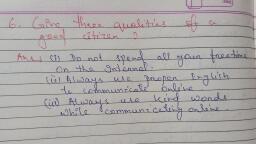 6. Give three qualities of a
good citizen?
Ans. (i) Do not spend all your freetime
on the Internet.
(ii) Always use proper English
to communicate online
(iii) Always use kind words
while communicating online.